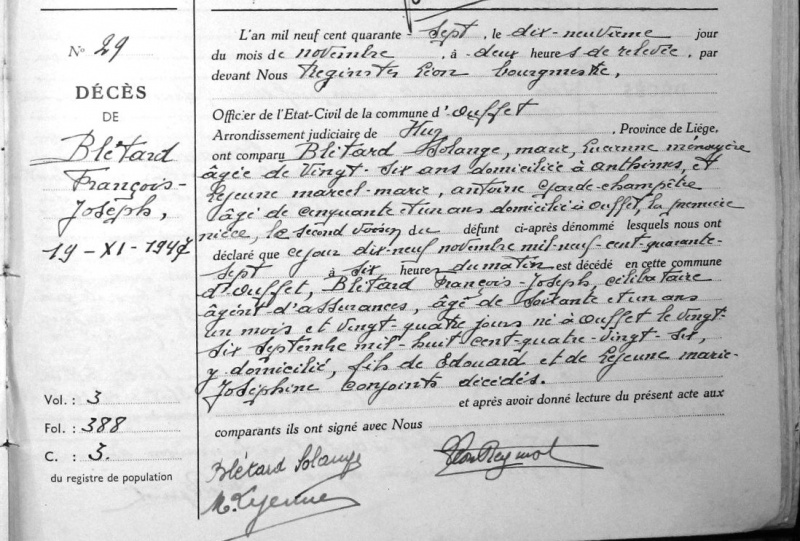 N° 29
DÉCÈS
DE
Blétard
François-
Joseph,
19-XI-1947
Vol. : 3
Fol. : 388
C. : 3.
du registre de population
L'an mil neuf cent quarante-sept, le dix-neuvième jour
du mois de novembre, à deux heures de relevée, par
devant Nous Léon bourgmestre,
Officier de l'Etat-Civil de la commune d'Ouffet
Arrondissement judiciaire de Huy, Province de Liège,
ont comparu Blétard Solange, marie, Lucienne ménagère
âgée de Vingt-six ans domiciliée à Anthisnes, et
Lejeune marcel-marie, antoine Garde-champêtre
âgé de cinquante et un ans domicilié à Ouffet, la première
nièce, le second voisin du défunt ci-après dénommé lesquels nous ont
déclaré que ce jour dix-neuf novembre mil-neuf-cent-quarante-
sept à six heures du matin est décédé en cette commune
d'Ouffet, Blétard François-Joseph, célibataire
agent d'assurances, âgé de soixante et un ans
un mois et vingt-quatre jours né à Ouffet le vingt-
six septembre mil-huit cent-quatre-vingt-six,
y domicilié, fils de Edouard et de Lejeune marie-
Joséphine conjoints décédés.
et après avoir donné lecture du présent acte aux
comparants ils ont signé avec Nous
Blétard Solange
M. Lejeune